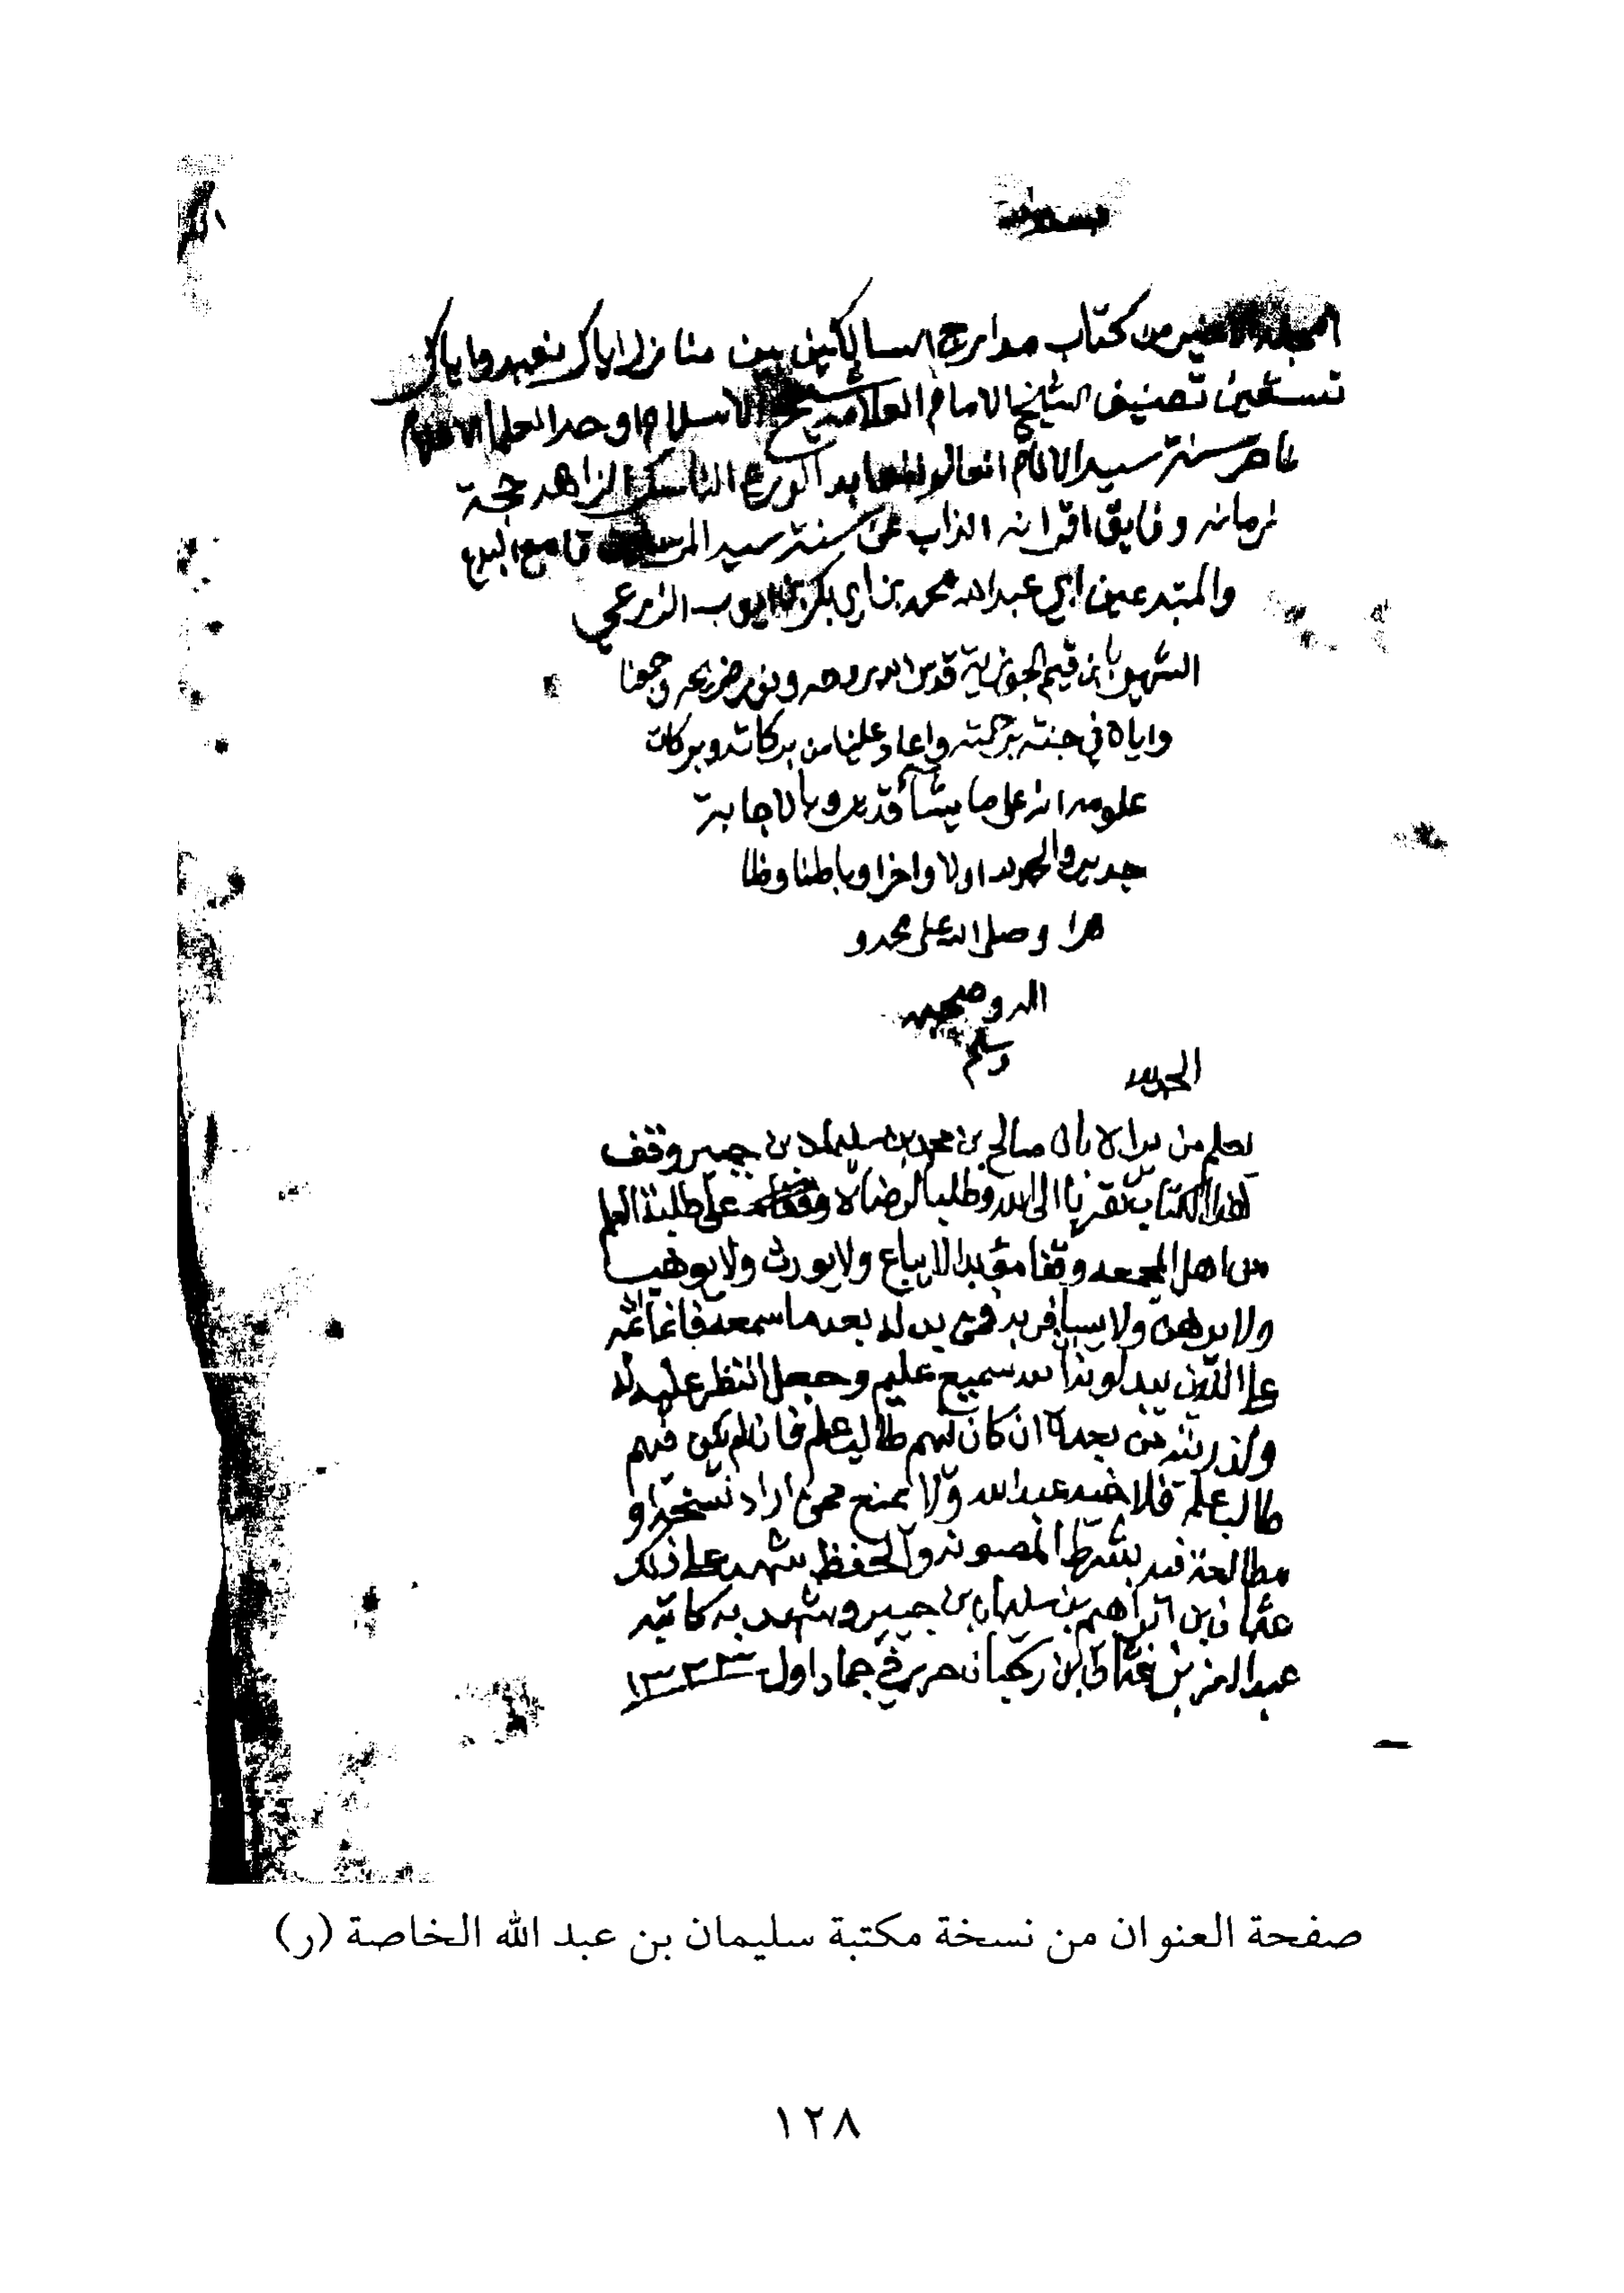 المجلد الاخير من كتاب مدارج السالكين بين منازل اياك نعبد واياك
نستعين تصنيف الشيخ الامام العلامه شيخ الاسلام اوحد العلما
ناصر سنة سيد الانام العالم العابد الورع الناسك الزاهد حجة
زمانه وفايق اقرانه الذاب عن سنة سيد قامع البدع
والمبتدعين ابي عبد الله محمد بن ابي بكر بن ايوب الزرعي
الشهير بابن قيم الجوزية قدس الله روحه ونور ضريحه وجمعنا
واياه في جنته برحمته واعاد علينا من بركاته وبركات
علومه انه على ما يشآء قدير وبالاجابة
جدير والحمد لله اولا واخرا وباطنا وظا
هرا وصلى الله على محمد و
اله وصحبه
وسلم
الحمد لله
يعلم من يراه بان صالح بن محمد بن سليمان بن جبير وقف
هذا الكتاب تقربا الى الله وطلبا لرضاه على طلبة العلم
من اهل المجمعه وقفا مؤبدا لا يباع ولا يورث ولا يوهب
ولا يرهن ولا يسافر به فمن بدله بعد ما سمعه فانما اثمه
على الذين يبدلونه ان الله سميع عليم وجعل النظر عليه له
ولذريته من بعده ان كان فيهم طالب علم فان لم يكن فيهم
طالب علم فلاخيه عبد الله ولا يمنع ممن اراد نسخه او
مطالعة فيه بشرط الصونه والحفظ شهد على ذلك
عثمان بن ابراهيم بن سليمان بن جبير وشهد به كاتبه
عبد العزيز بن بن ركبان حرر في جماد اول ١٣٢٣
صفحة العنوان من نسخة مكتبة سليمان بن عبد الله الخاصة (ر)
١٢٨